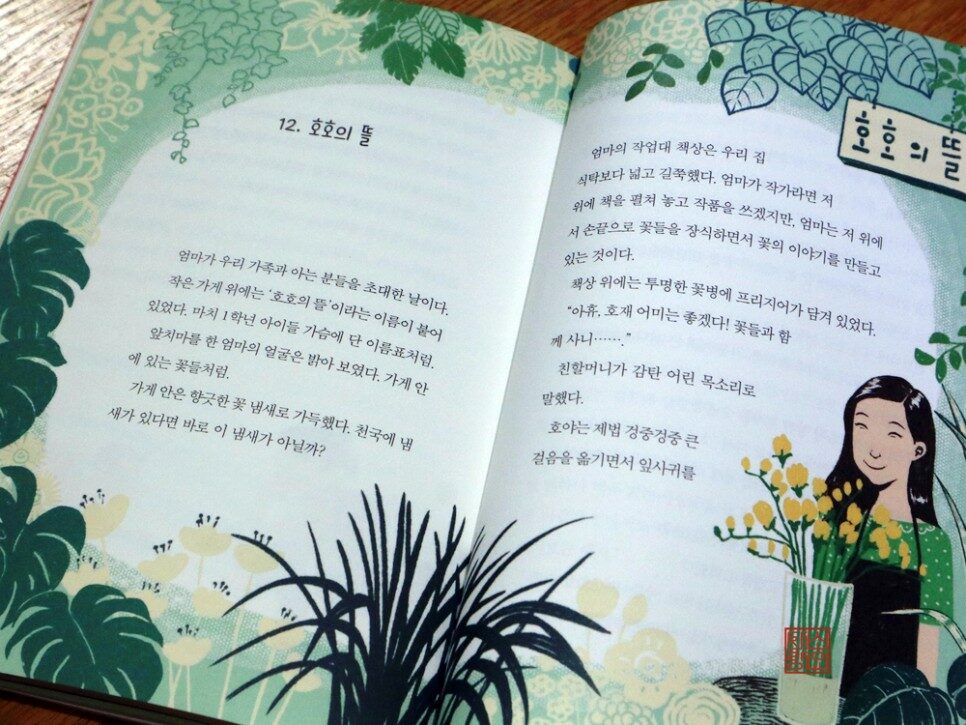 12. 호호의 뜰
엄마가 우리 가족과 아는 분들을 초대한 날이다.
작은 가게 위에는 ‘호호의 뜰’이라는 이름이 붙어
있었다. 마치 1학년 아이들 가슴에 단 이름표처럼.
앞치마를 한 엄마의 얼굴은 밝아 보였다. 가게 안
에 있는 꽃들처럼.
가게 안은 향긋한 꽃 냄새로 가득했다. 천국에 냄
새가 있다면 바로 이 냄새가 아닐까?
호호의 뜰
엄마의 작업대 책상은 우리 집
식탁보다 넓고 길쭉했다. 엄마가 작가라면 저
위에 책을 펼쳐 놓고 작품을 쓰겠지만, 엄마는 저 위에
서 손끝으로 꽃들을 장식하면서 꽃의 이야기를 만들고
있는 것이다.
책상 위에는 투명한 꽃병에 프리지어가 담겨 있었다.
“아휴, 호재 어미는 좋겠다! 꽃들과 함
께 사니…….”
친할머니가 감탄 어린 목소리로
말했다.
호야는 제법 겅중겅중 큰
걸음을 옮기면서 잎사귀를